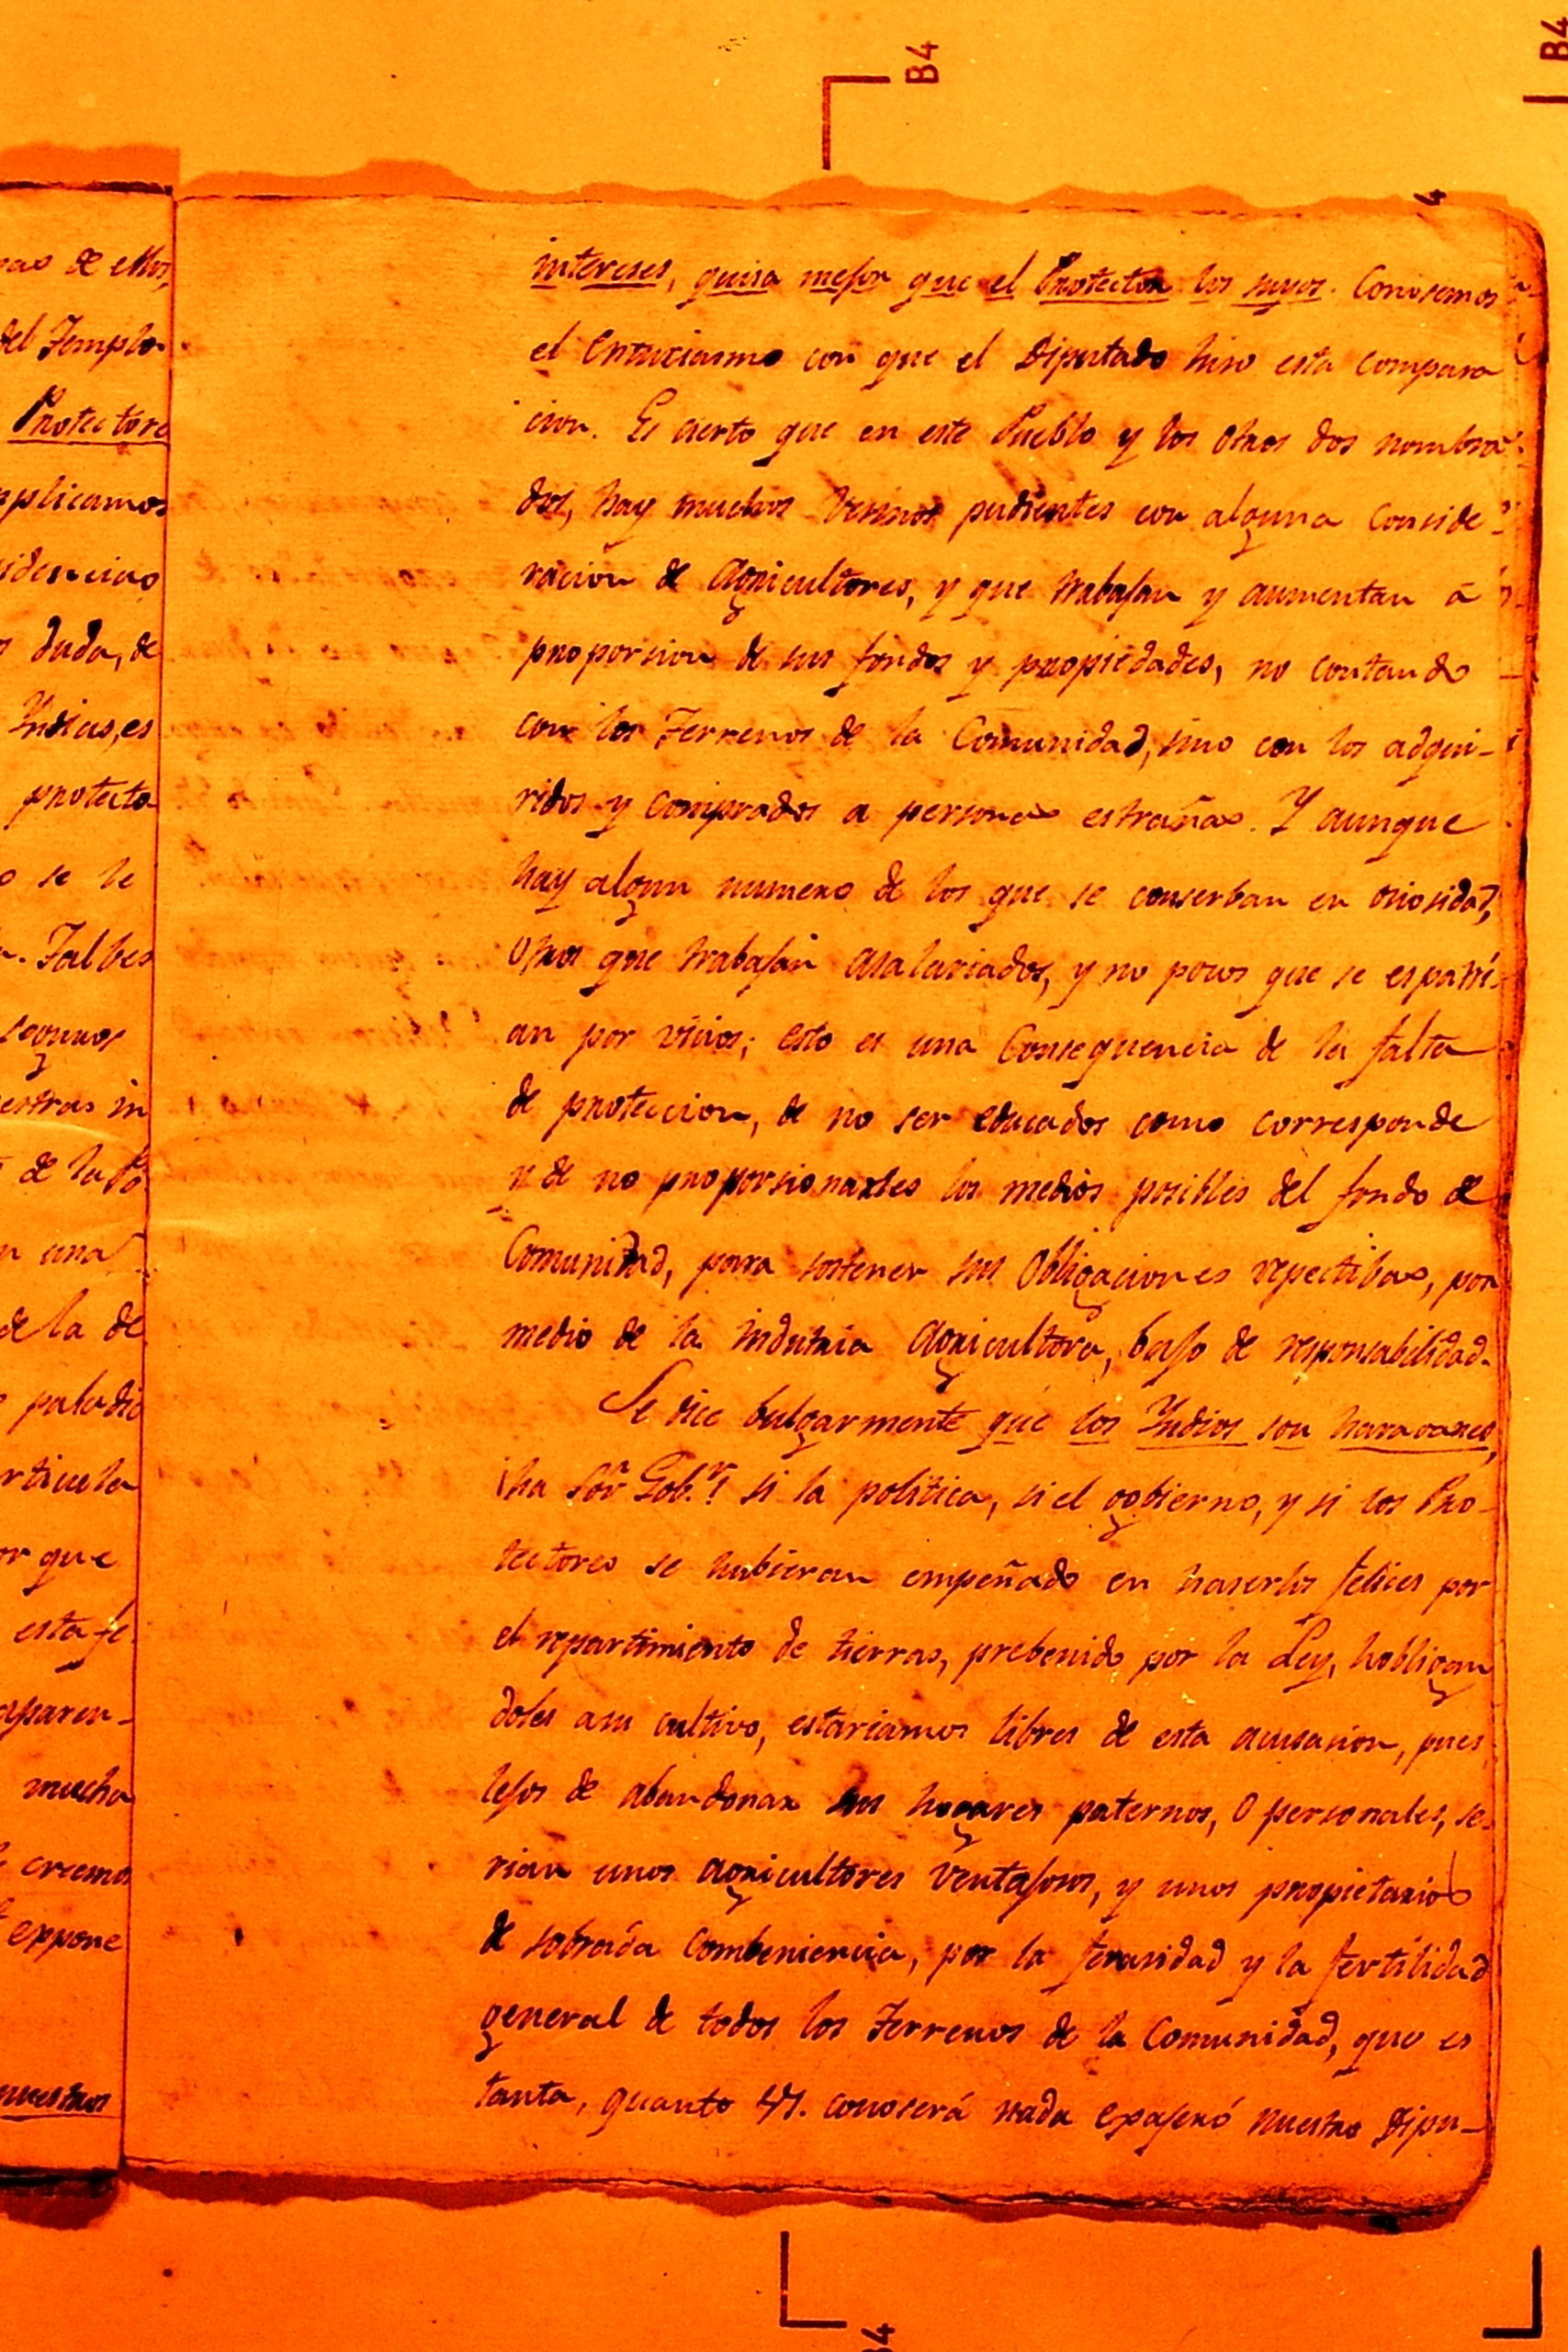 B4
B4
4
intereses, quisa mejor que el Protector los suyos. Conosemos
el Entuciasmo con que el Diputado hiso esta compara
cion. Es cierto que en este Pueblo y los otros dos nombra
dos, hay muchos Vesinos pudientes con alguna Conside-
racion de Agricultores, y que trabajan y aumentan á
proporsion de sus fondos y propiedades, no contando
con los Terrenos de la Comunidad, sino con los adqui-
ridos y comprados a personas estrañas. Y aunque
hay algun numero de los que se conserban en osiosidad,
otros que trabajan asalariados, y no pocos que se espatri-
an por vicios; esto es una Consequencia de la falta
de proteccion, de no ser educados como corresponde
y de no proporsionarles los medios posibles del fondo de
Comunidad, para sostener sus Obligaciones repectibas, por
medio de la indutria Agricultora, bajo de responsabilidad.
Se dice bulgarmente que los Yndios son haraganes,
¡ha Sõr Gob.r! si la politica, si el gobierno, y si los Pro-
tectores se hubieran empeñado en haserlos felices por
el repartimiento de tierras, prebenido por la Ley, hobligan
doles asu cultivo, estariamos libres de esta acusasion, pues
lejos de abandonar sus hogares paternos, o personales, se-
rian unos agricultores ventajosos, y unos propietarios
de sobrada combeniencia, por la ferasidad y la fertilidad
general de todos los Terrenos de la Comunidad, que es
tanta, quanto conoserá nada exajeró nuestro Dipu-
de ellos,
del Templo
Protectore
plicamos
duda, de
Yndias, es
protecto
se le
Talbes
seguros
estras in
de la
una
de la de
paladio
rticula
or que
esta fe
aparen-
mucha
creemos
expone
nuestros
B4